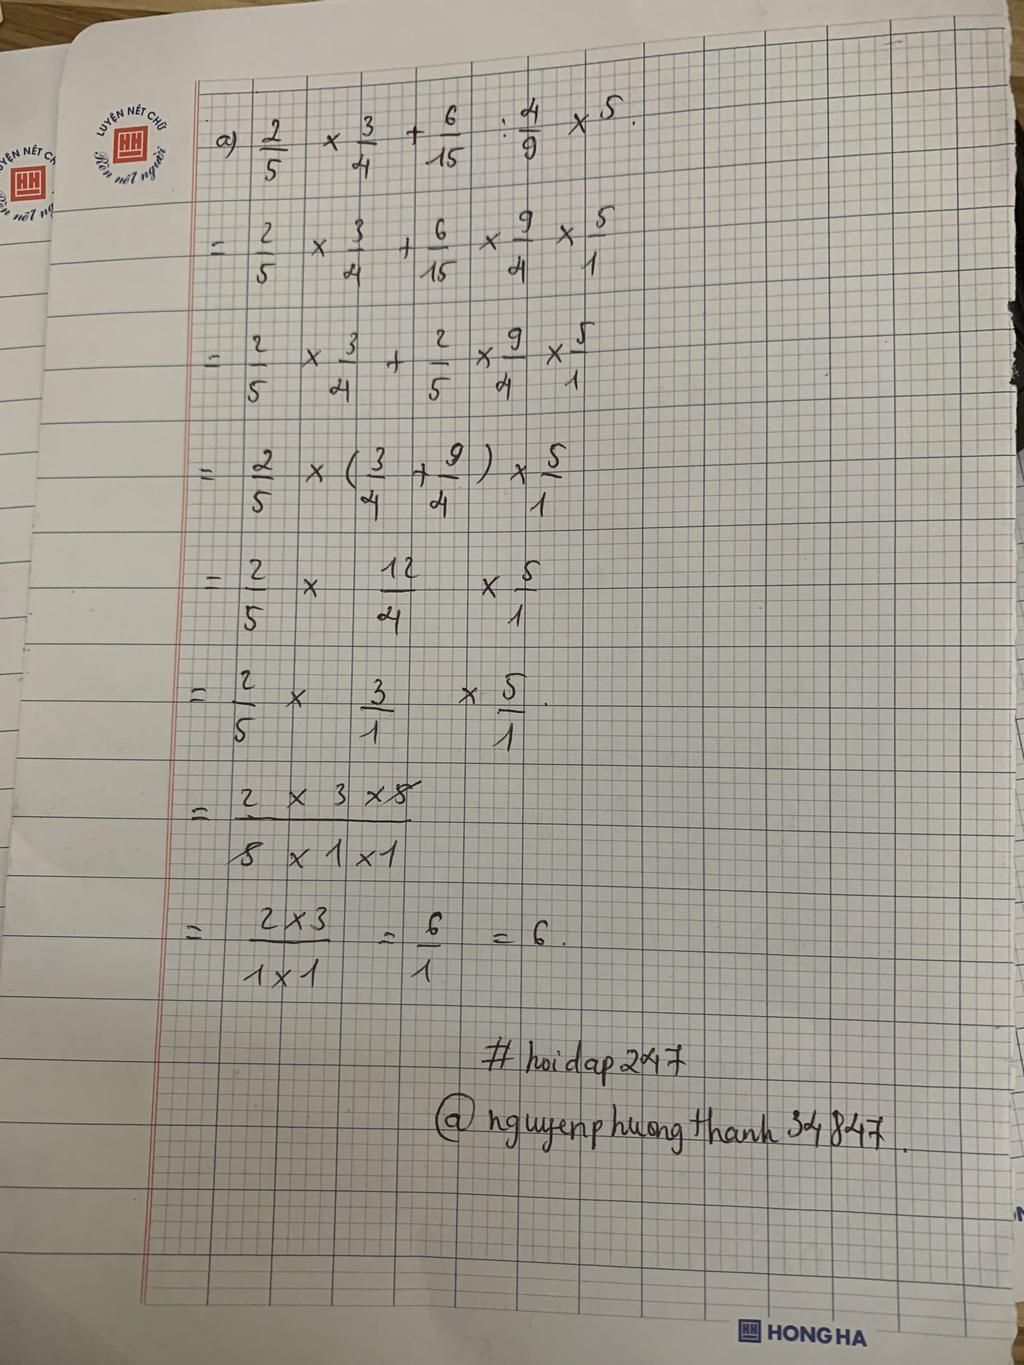 LUYỆN NÉT CHỮ
HH
Rèn nết người
YỆN NÉT CH
HH
a) 2/5 × 3/4 + 6/15 : 4/9 × 5.
= 2/5 × 3/4 + 6/15 × 9/4 × 5/1
= 2/5 × 3/4 + 2/5 × 9/4 × 5/1
= 2/5 × (3/4 + 9/4) × 5/1
= 2/5 × 12/4 × 5/1
= 2/5 × 3/1 × 5/1.
= 2 × 3 × 5 / 5 × 1 × 1
= 2 × 3 / 1 × 1 = 6/1 = 6.
# hoidap247
@nguyenphuongthanh34847.
HH HONG HA